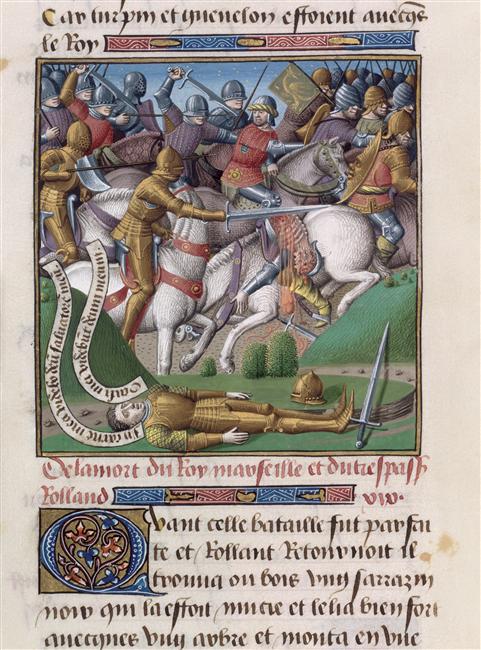 Car turpin et guenelon estoient auecqs
le Roy
In carne mea videbo deū saluatorē meū
mei videbūt deum meum
De la mort du Roy marseille et du trespass
Rolland
Quant celle bataille fut par fai
te et Rollant Retournoit il
trouua ou bois vng sarrazin
noir qui la estoit mucie et le lia bien fort
auecques vng arbre et monta en vne